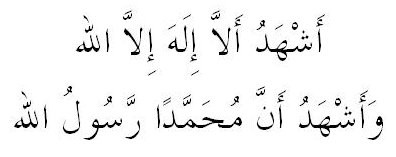 أَشْهَدُ أَلاَّ إِلَهَ إِلاَّ الله
وَأَشْهَدُ أَنَّ مُحَمَّدًا رَّسُولُ الله